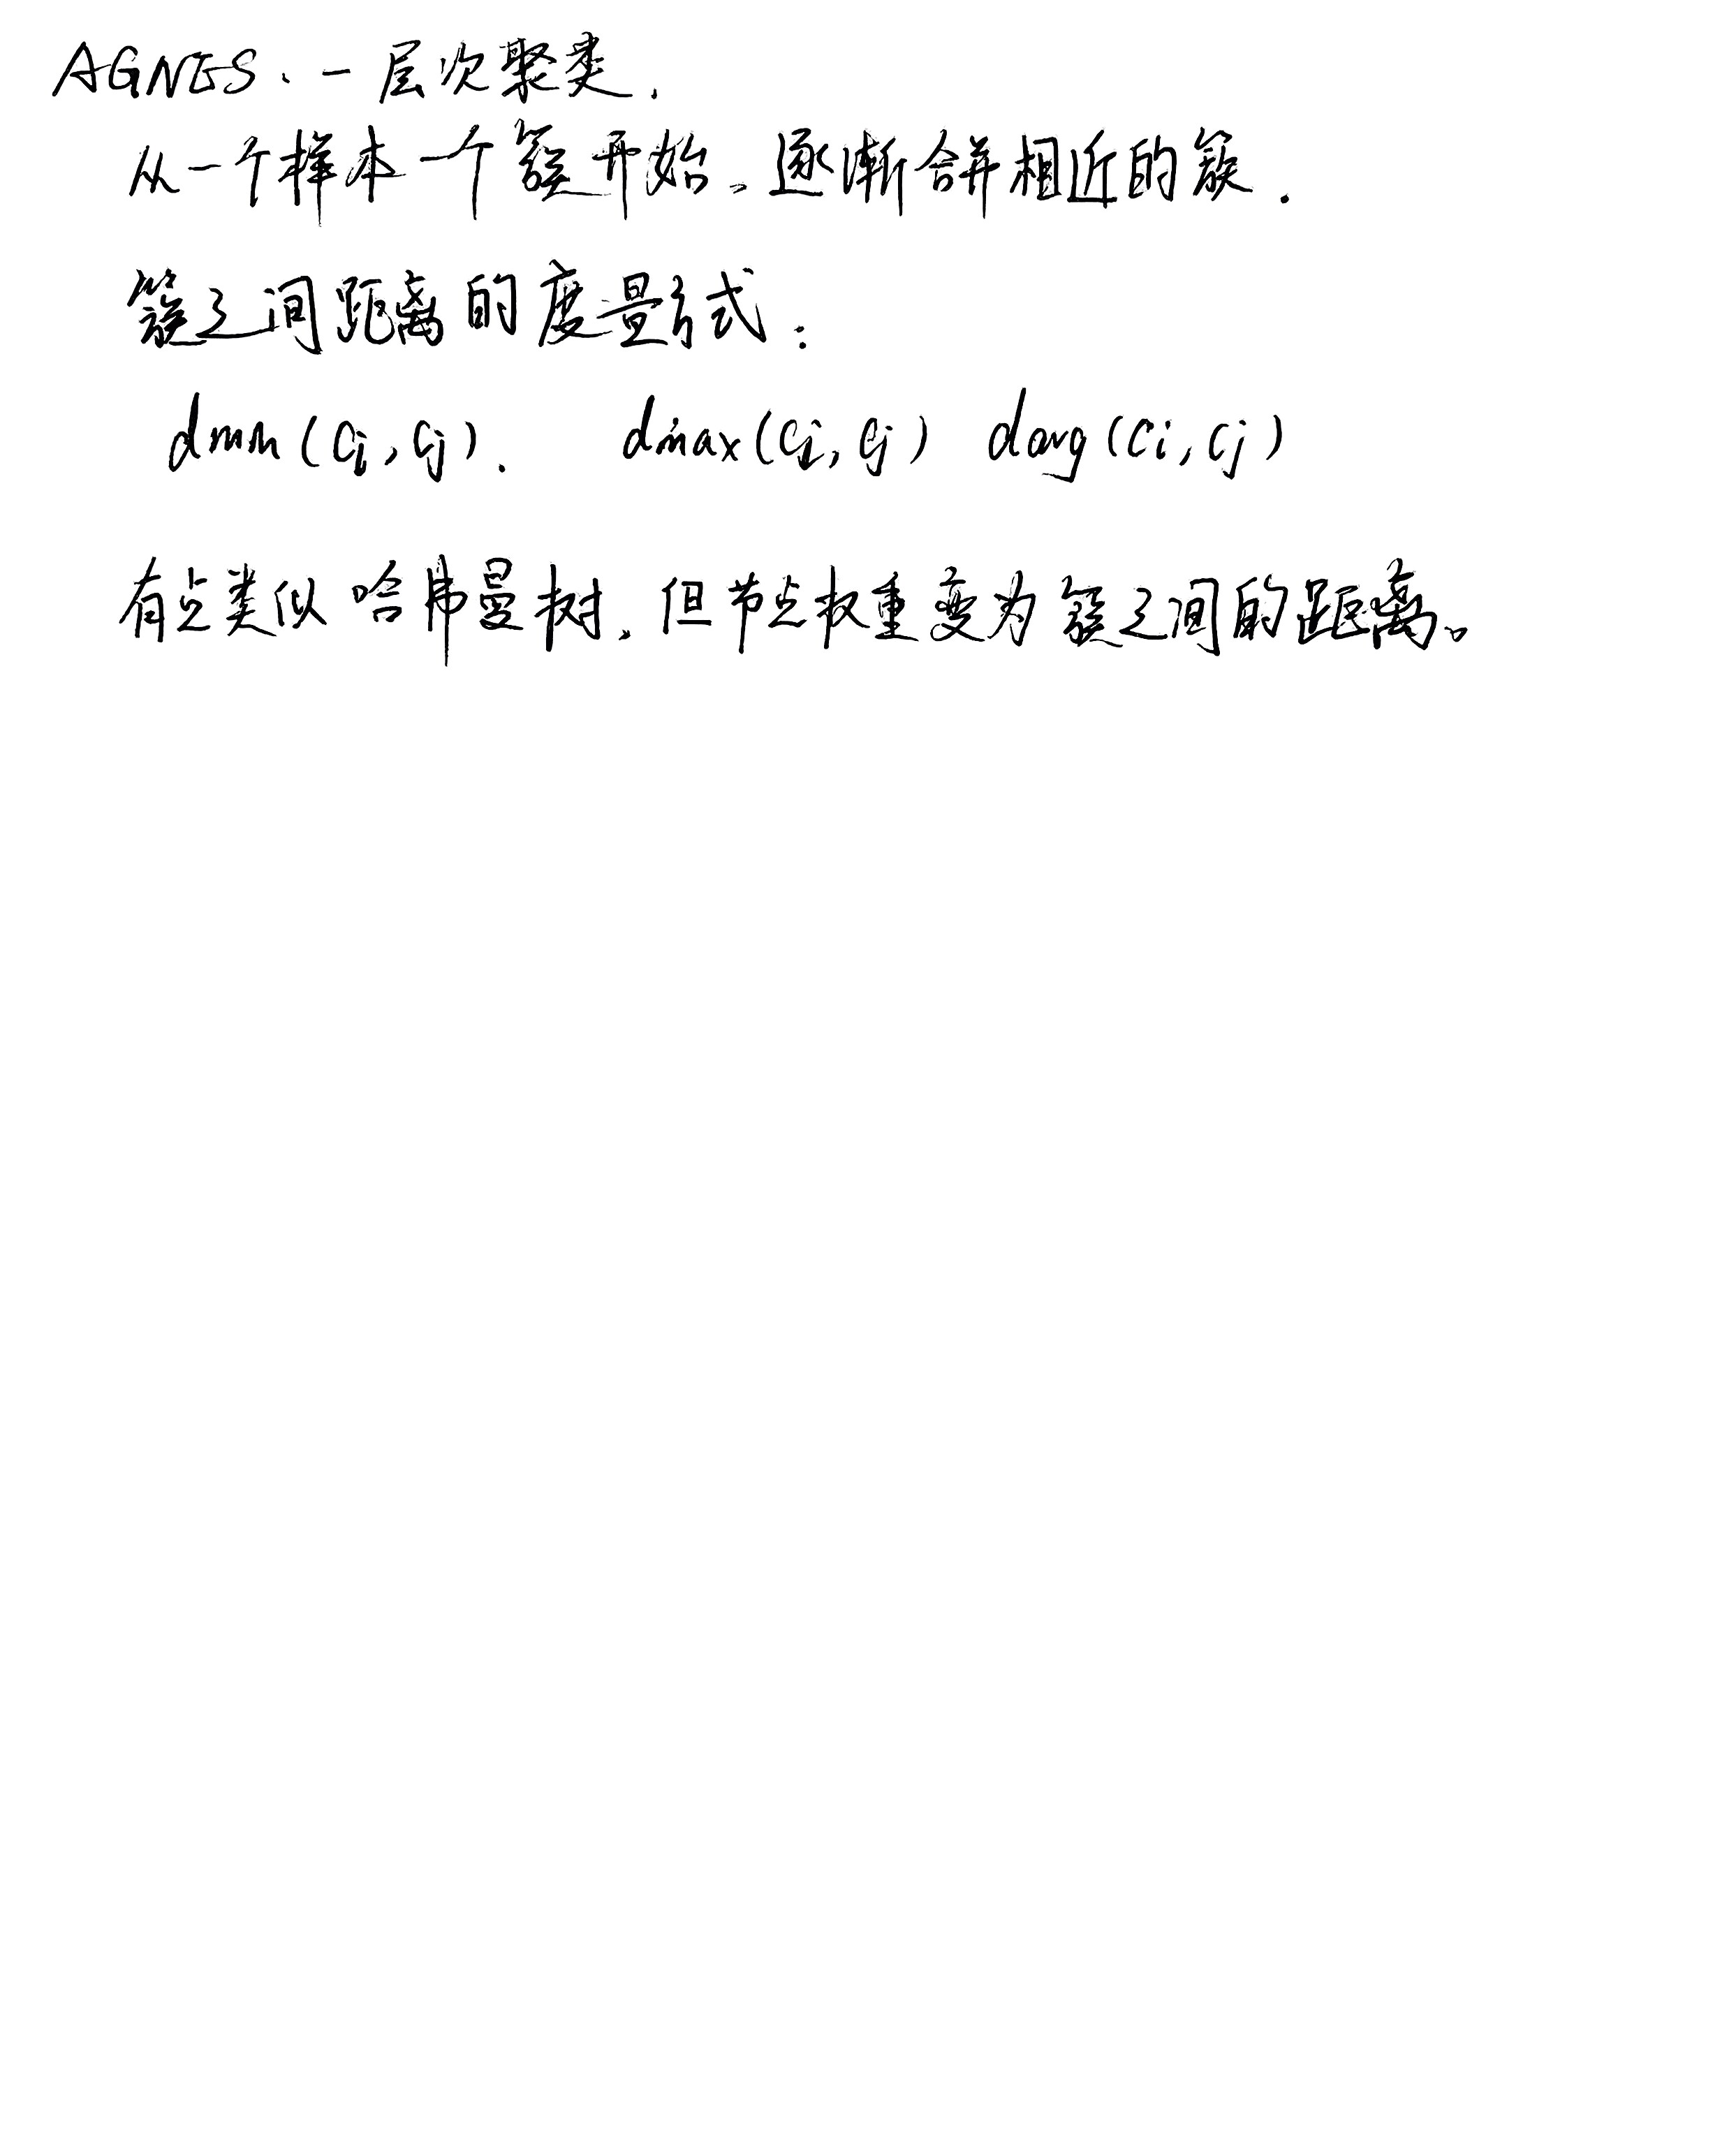 AGNES、一层次聚类.
从一个样本一个簇开始、逐渐合并相近的簇.
簇之间距离的度量方式:
dmin(Ci,Cj).  dmax(Ci,Cj)  davg(Ci,Cj)
有点类似哈弗曼树,但节点权重变为簇之间的距离。